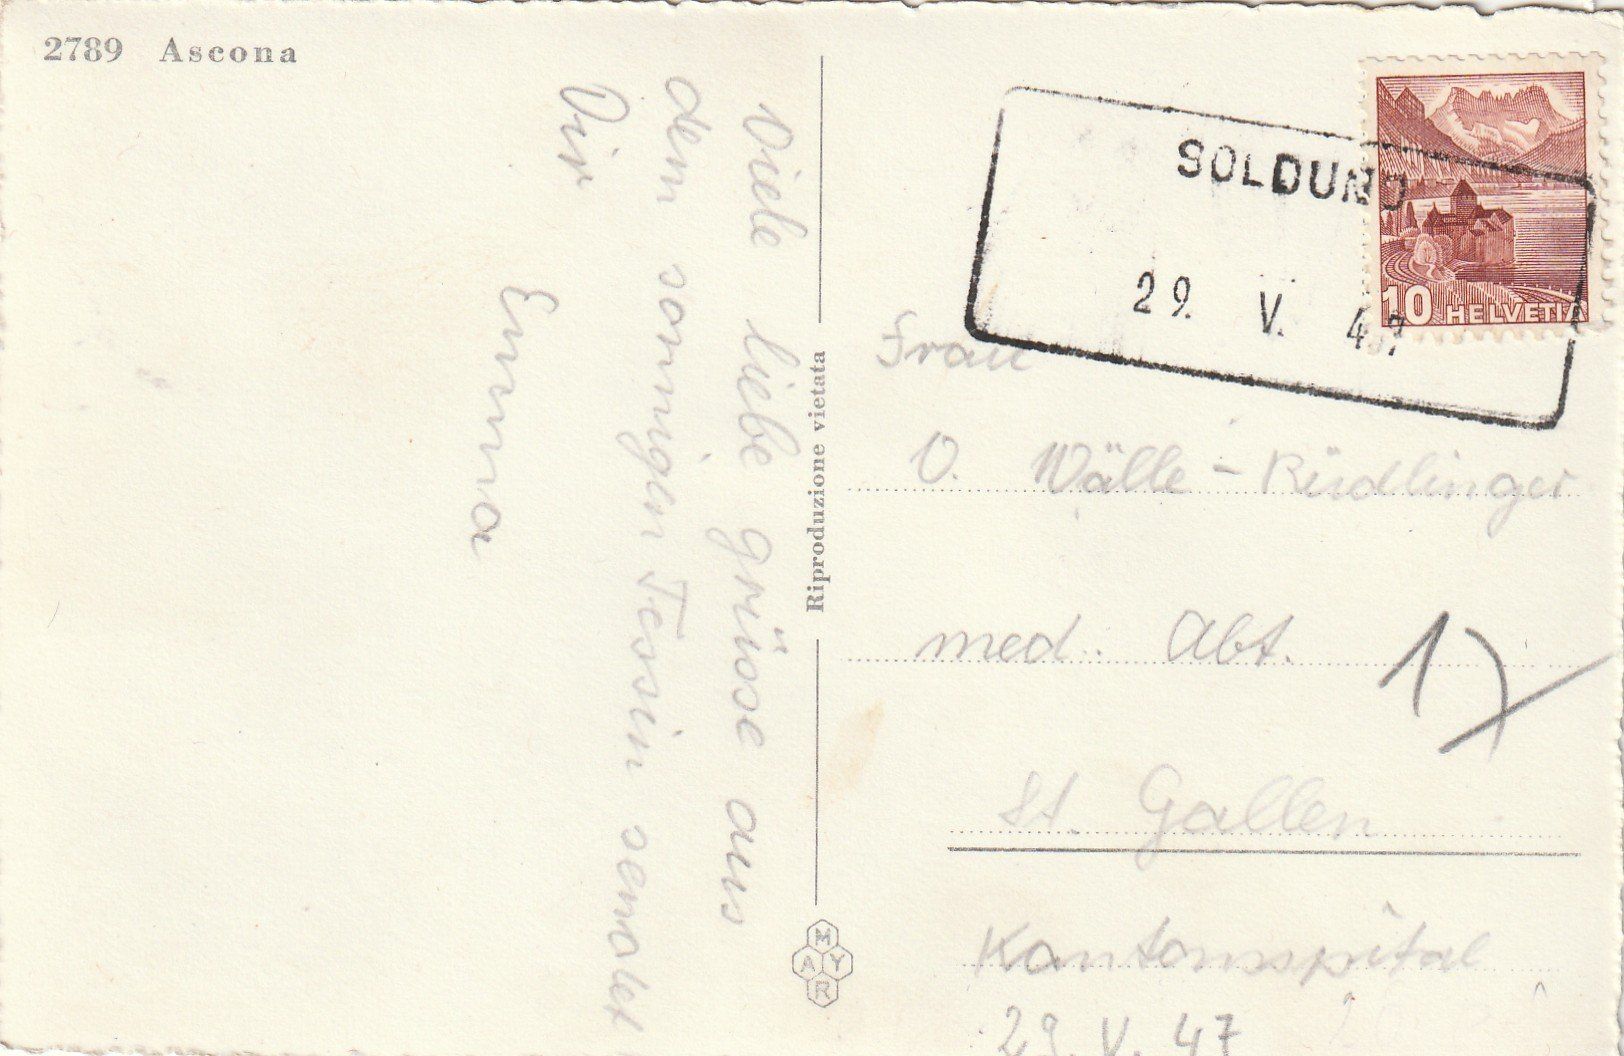 2789 Ascona
Viele liebe grüsse aus
dem sonnigen Tessin sendet
Dir
Emma
Riproduzione vietata
MARY
SOLDUNO
29. V. 47
10 HELVETIA
Frau
O. Wälle-Rüdlinger
med. Abt.
17
St. Gallen
Kantonsspital
29. V. 47